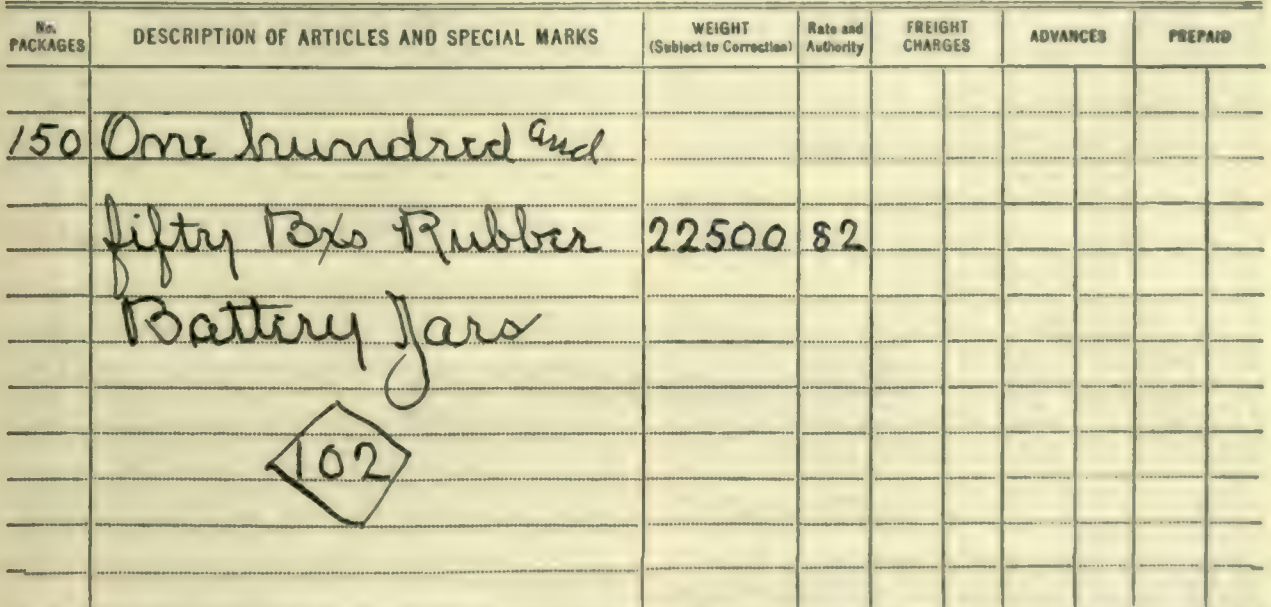 No. PACKAGES DESCRIPTION OF ARTICLES AND SPECIAL MARKS WEIGHT (Subject to Correction) Rate and Authority FREIGHT CHARGES ADVANCES PREPAID
150 One hundred and
fifty Bxs Rubber 22500 82
Battery Jars
102